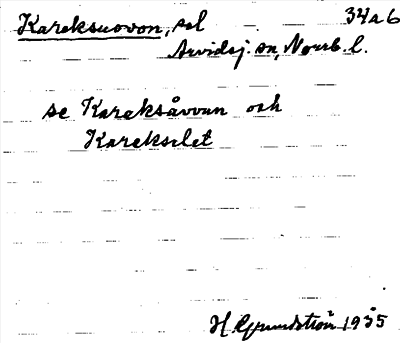 Kareksuovon, sel 34a6
Arvidsj. sn, Norrb. l.
se Kareksåvvun och
Karekselet
H. Grundström 1935